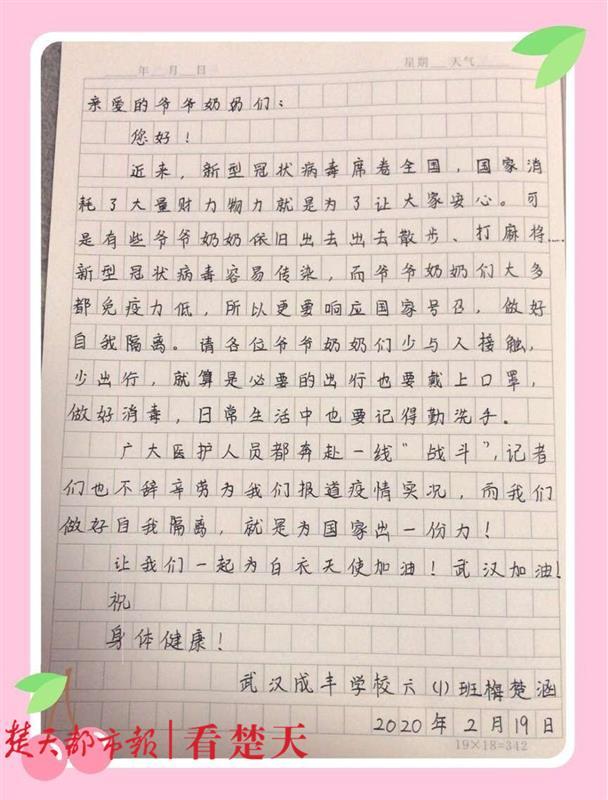 年 月 日 星期 天气
亲爱的爷爷奶奶们：
您好！
近来，新型冠状病毒席卷全国，国家消
耗了大量财力物力就是为了让大家安心。可
是有些爷爷奶奶依旧出去出去散步、打麻将……
新型冠状病毒容易传染，而爷爷奶奶们大多
都免疫力低，所以更要响应国家号召，做好
自我隔离。请各位爷爷奶奶们少与人接触，
少出行，就算是必要的出行也要戴上口罩，
做好消毒，日常生活中也要记得勤洗手。
广大医护人员都奔赴一线“战斗”，记者
们也不辞辛劳为我们报道疫情实况，而我们
做好自我隔离，就是为国家出一份力！
让我们一起为白衣天使加油！武汉加油！
祝
身体健康！
武汉成丰学校六（1）班梅楚涵
2020年2月19日
楚天都市报|看楚天
19×18=342